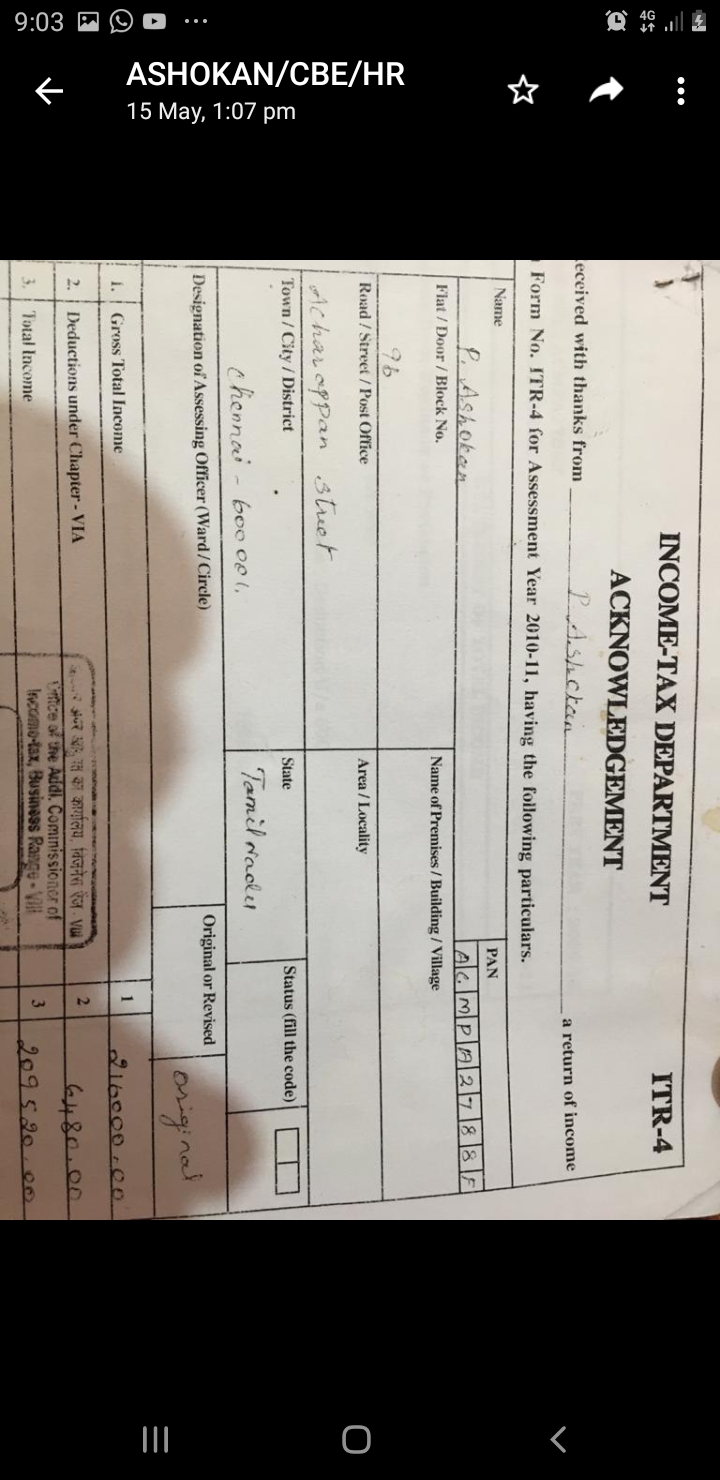 9:03
4G
ASHOKAN/CBE/HR
15 May, 1:07 pm
INCOME-TAX DEPARTMENT
ITR-4
ACKNOWLEDGEMENT
eceived with thanks from P. Ashokan a return of income
Form No. ITR-4 for Assessment Year 2010-11, having the following particulars.
Name
P. Ashokan
PAN
ACMPA2788F
Flat / Door / Block No.
96
Name of Premises / Building / Village
Road / Street / Post Office
Acharappan street
Area / Locality
Town / City / District
Chennai - 600 001.
State
Tamil nadu
Status (fill the code)
Designation of Assessing Officer (Ward / Circle)
Original or Revised
original
1. Gross Total Income 1 216000.00
2. Deductions under Chapter - VIA 2 6480.00
3. Total Income 3 209520.00
Office of the Addl. Commissioner of
Income-tax, Business Range - VIII